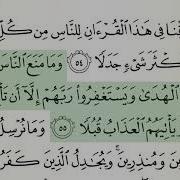 فِي هَٰذَا ٱلْقُرْءَانِ لِلنَّاسِ مِن كُلِّ
كْثَرَ شَىْءٍ جَدَلًا ٥٤ وَمَا مَنَعَ ٱلنَّاسَ
ٱلْهُدَىٰ وَيَسْتَغْفِرُوا۟ رَبَّهُمْ إِلَّآ أَن تَأْ
يَأْتِيَهُمُ ٱلْعَذَابُ قُبُلًا ٥٥ وَمَا نُرْسِلُ
نَ وَمُنذِرِينَ وَيُجَٰدِلُ ٱلَّذِينَ كَفَرُ